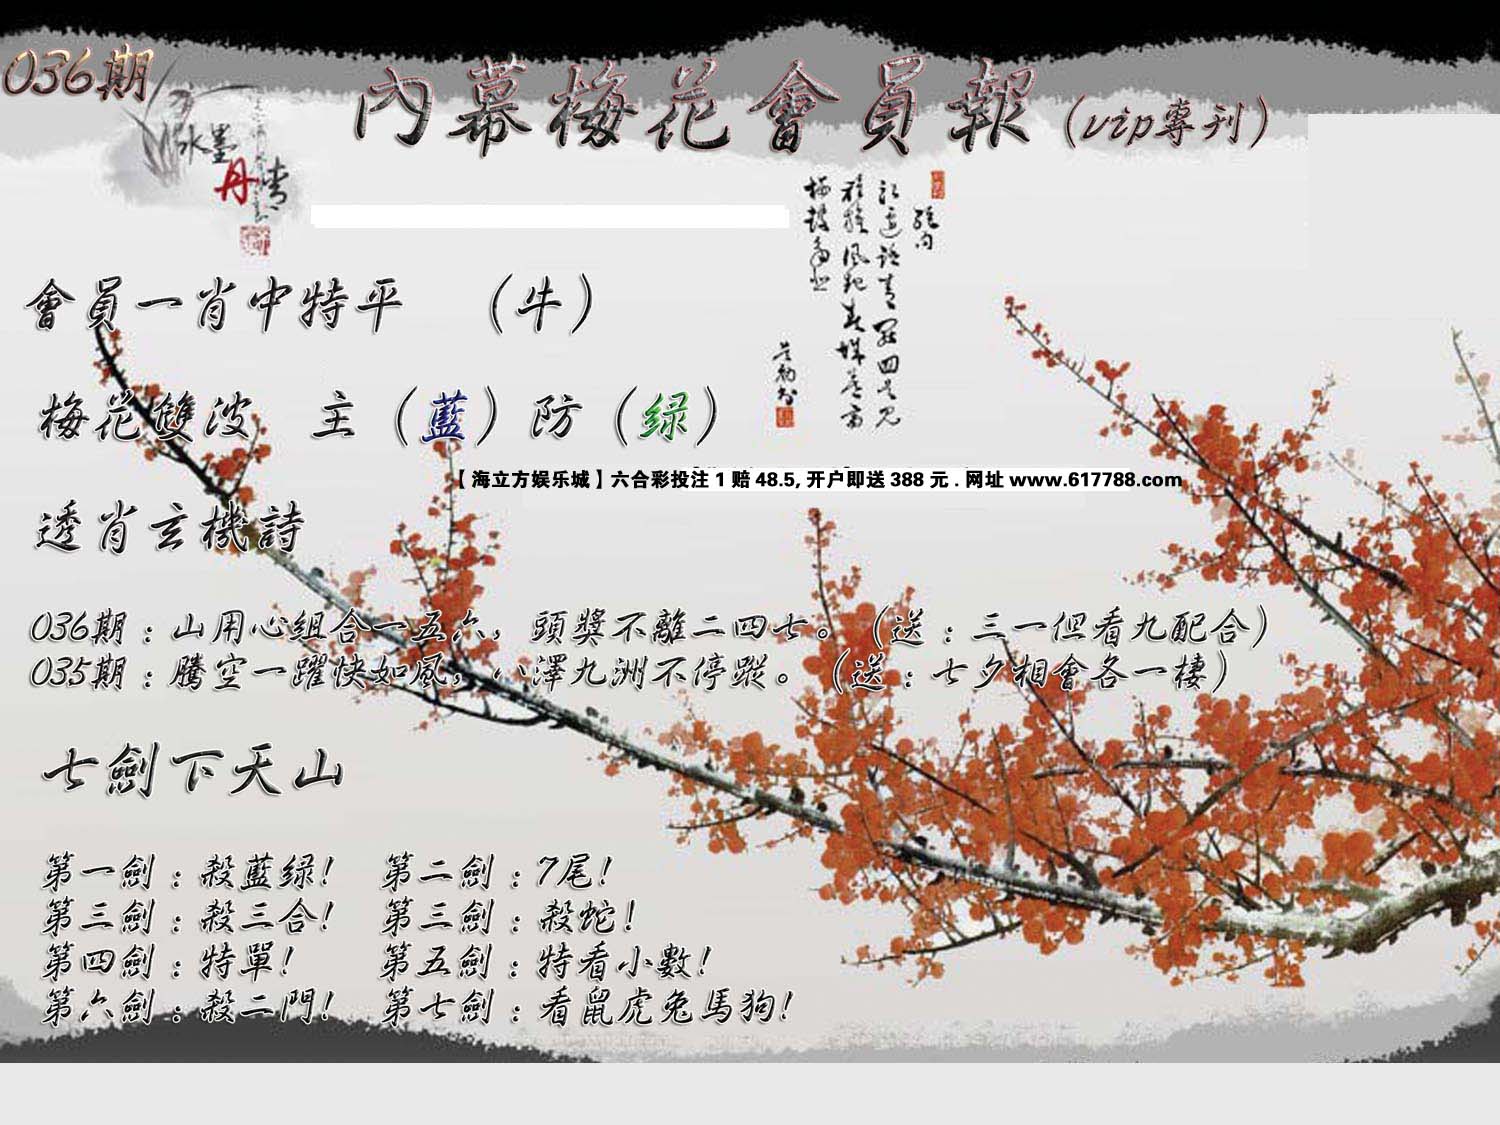 036期
內幕梅花會員報(vip專刊)
水墨
丹青
會員一肖中特平 (牛)
梅花雙波 主(藍)防(绿)
【海立方娱乐城】六合彩投注1赔48.5,开户即送388元.网址www.617788.com
透肖玄機詩
036期:山用心組合一五六,頭獎不離二四七。(送:三一但看九配合)
035期:騰空一躍快如風,八澤九洲不停蹤。(送:七夕相會各一棲)
七劍下天山
第一劍:殺藍绿! 第二劍:7尾!
第三劍:殺三合! 第三劍:殺蛇!
第四劍:特單! 第五劍:特看小數!
第六劍:殺二門! 第七劍:看鼠虎兔馬狗!